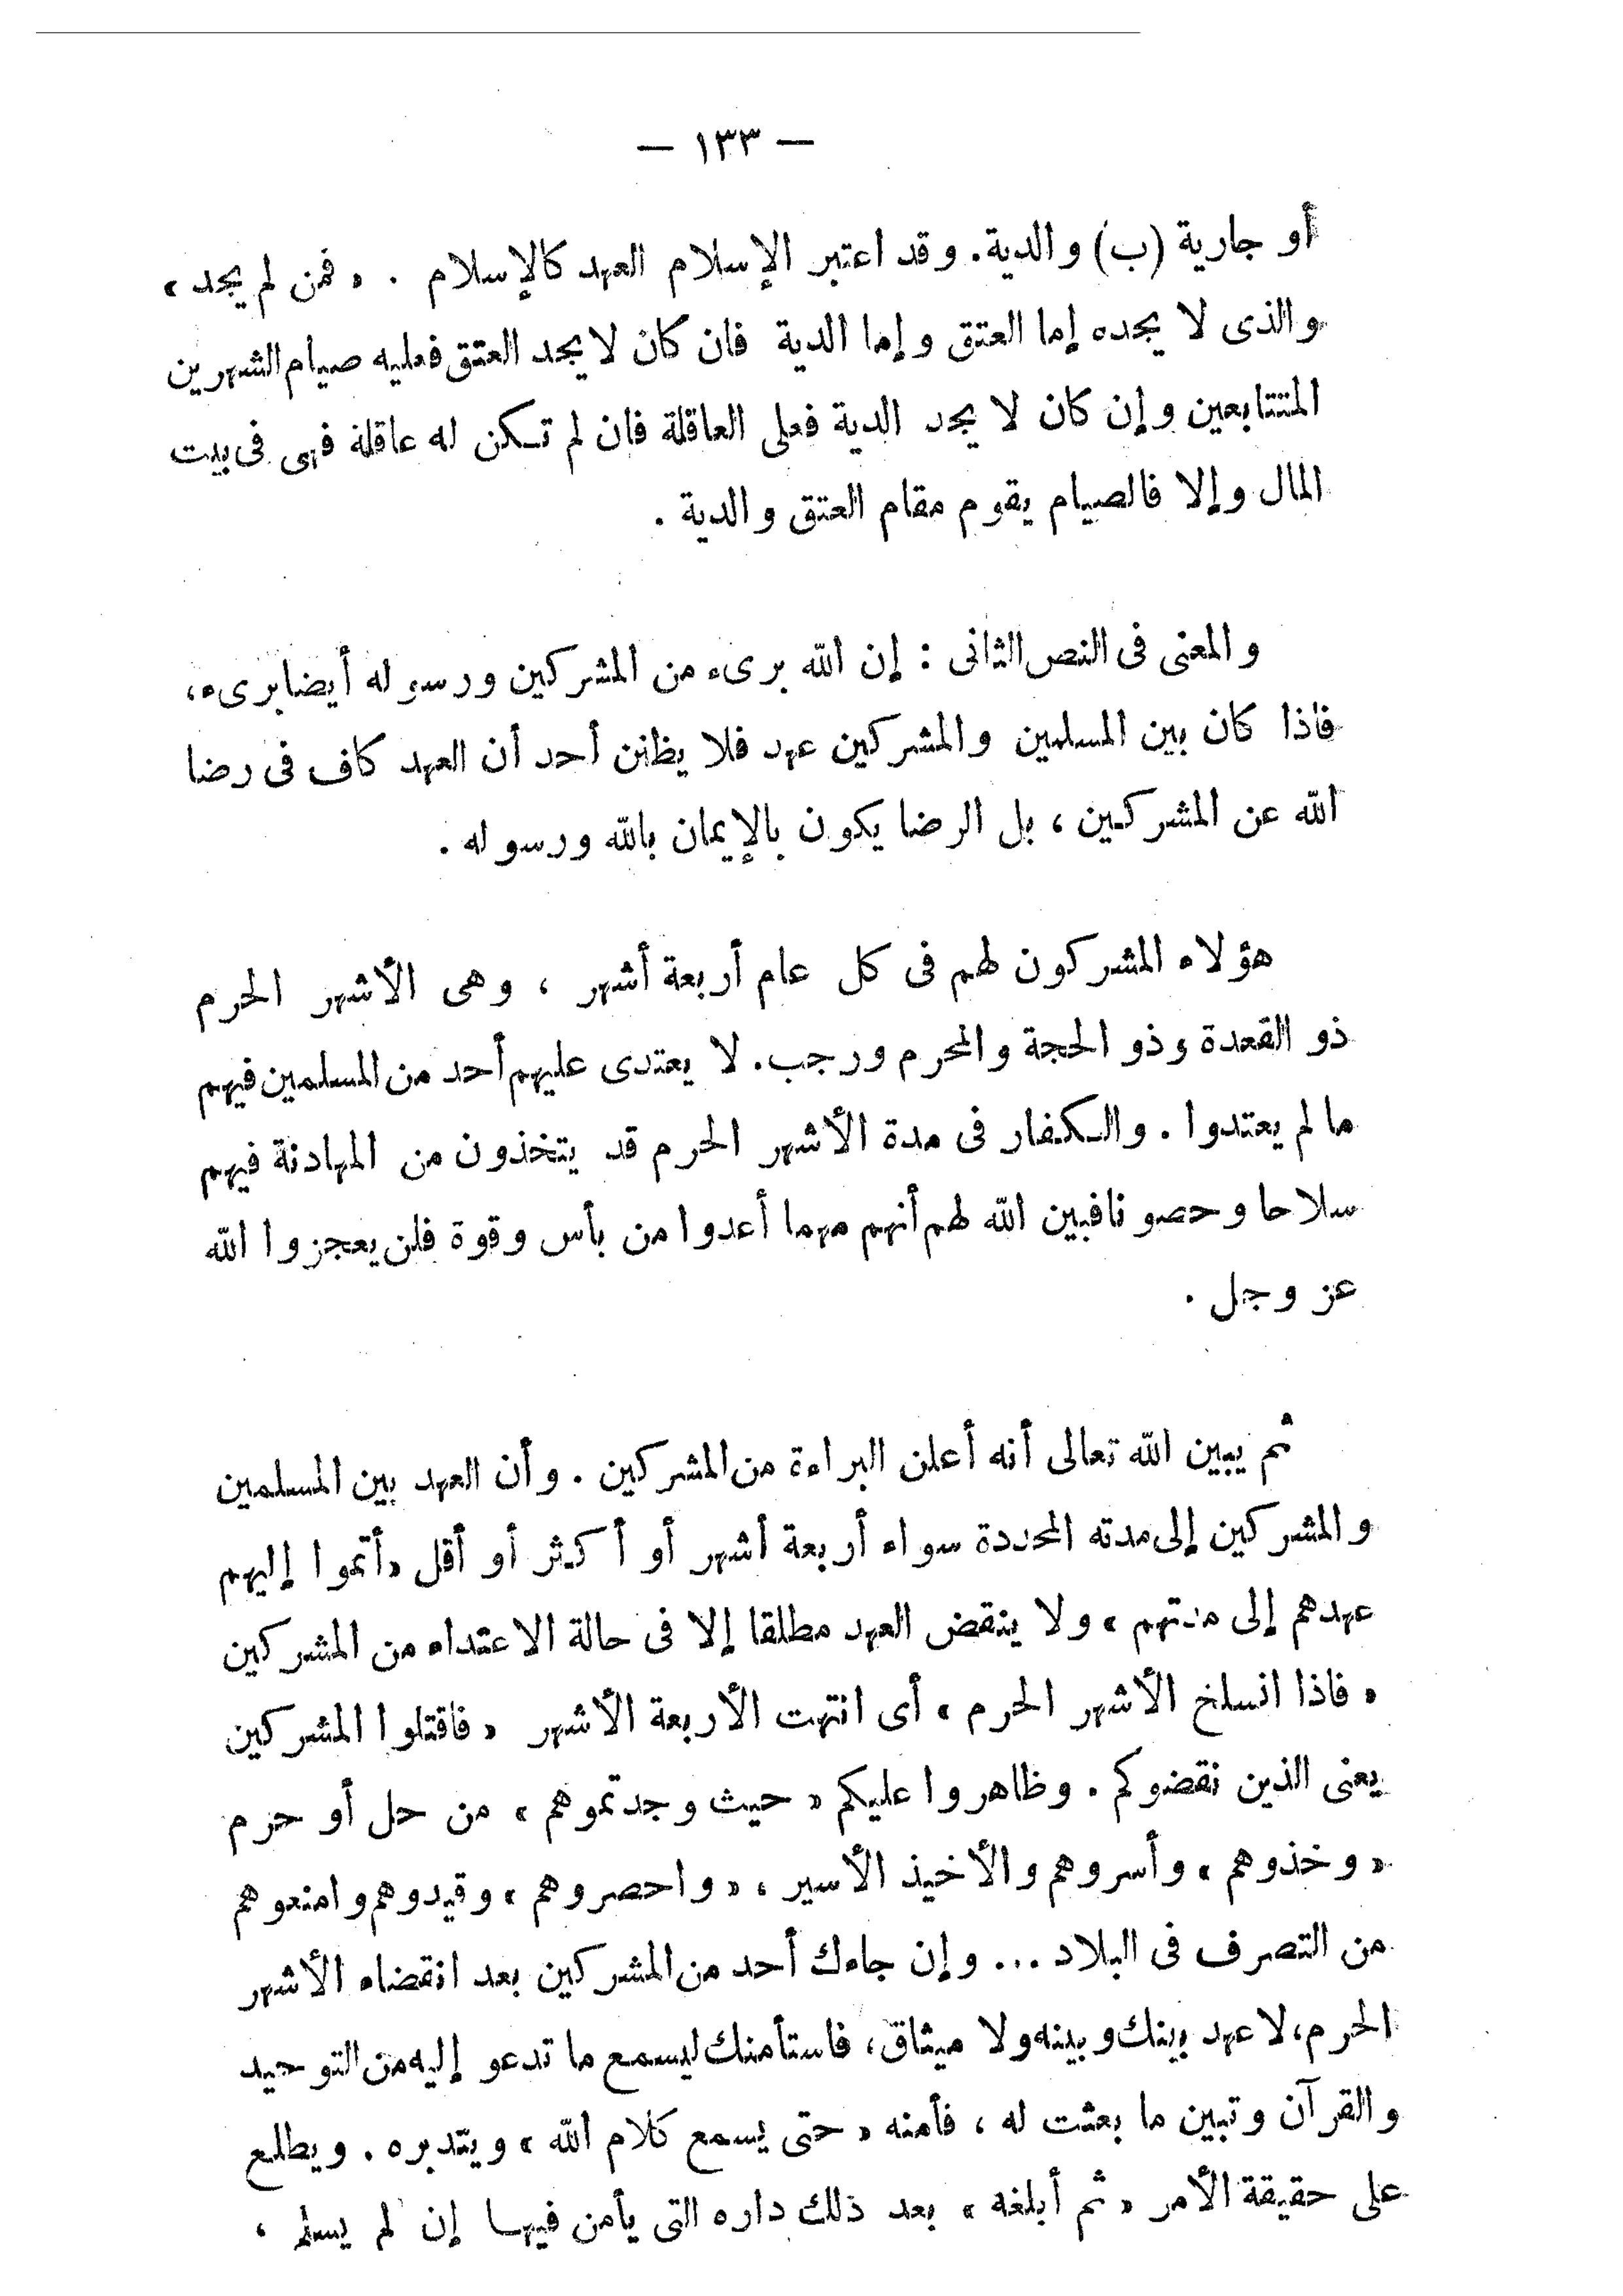 — ١٣٣ —
أو جارية (ب) والدية. وقد اعتبر الإسلام العهد كالإسلام . « فمن لم يجد »
والذى لا يجده إما العتق وإما الدية فان كان لا يجد العتق فعليه صيام الشهرين
المتتابعين وإن كان لا يجد الدية فعلى العاقلة فان لم تكن له عاقلة فهى فى بيت
المال وإلا فالصيام يقوم مقام العتق والدية .
والمعنى فى النص الثانى : إن الله برىء من المشركين ورسوله أيضا برىء،
فاذا كان بين المسلمين والمشركين عهد فلا يظنن أحد أن العهد كاف فى رضا
الله عن المشركين ، بل الرضا يكون بالإيمان بالله ورسوله .
هؤلاء المشركون لهم فى كل عام أربعة أشهر ، وهى الأشهر الحرم
ذو القعدة وذو الحجة والمحرم ورجب. لا يعتدى عليهم أحد من المسلمين فيهم
ما لم يعتدوا . والكفار فى مدة الأشهر الحرم قد يتخذون من المهادنة فيهم
سلاحا وحصونا فبين الله لهم أنهم مهما أعدوا من بأس وقوة فلن يعجزوا الله
عز وجل .
ثم يبين الله تعالى أنه أعلن البراءة من المشركين . وأن العهد بين المسلمين
والمشركين إلى مدته المحددة سواء أربعة أشهر أو أكثر أو أقل «أتموا إليهم
عهدهم إلى مدتهم » ولا ينقض العهد مطلقا إلا فى حالة الاعتداء من المشركين
« فاذا انسلخ الأشهر الحرم » أى انتهت الأربعة الأشهر « فاقتلوا المشركين
يعنى الذين نقضوكم . وظاهروا عليكم « حيث وجدتموهم » من حل أو حرم
« وخذوهم » وأسروهم والأخيذ الأسير ، « واحصروهم » وقيدوهم وامنعوهم
من التصرف فى البلاد ... وإن جاءك أحد من المشركين بعد انقضاء الأشهر
الحرم، لا عهد بينك وبينه ولا ميثاق، فاستأمنك ليسمع ما تدعو إليه من التوحيد
والقرآن وتبين ما بعثت له ، فأمنه « حتى يسمع كلام الله » ويتدبره . ويطلع
على حقيقة الأمر « ثم أبلغه » بعد ذلك داره التى يأمن فيها إن لم يسلم ،